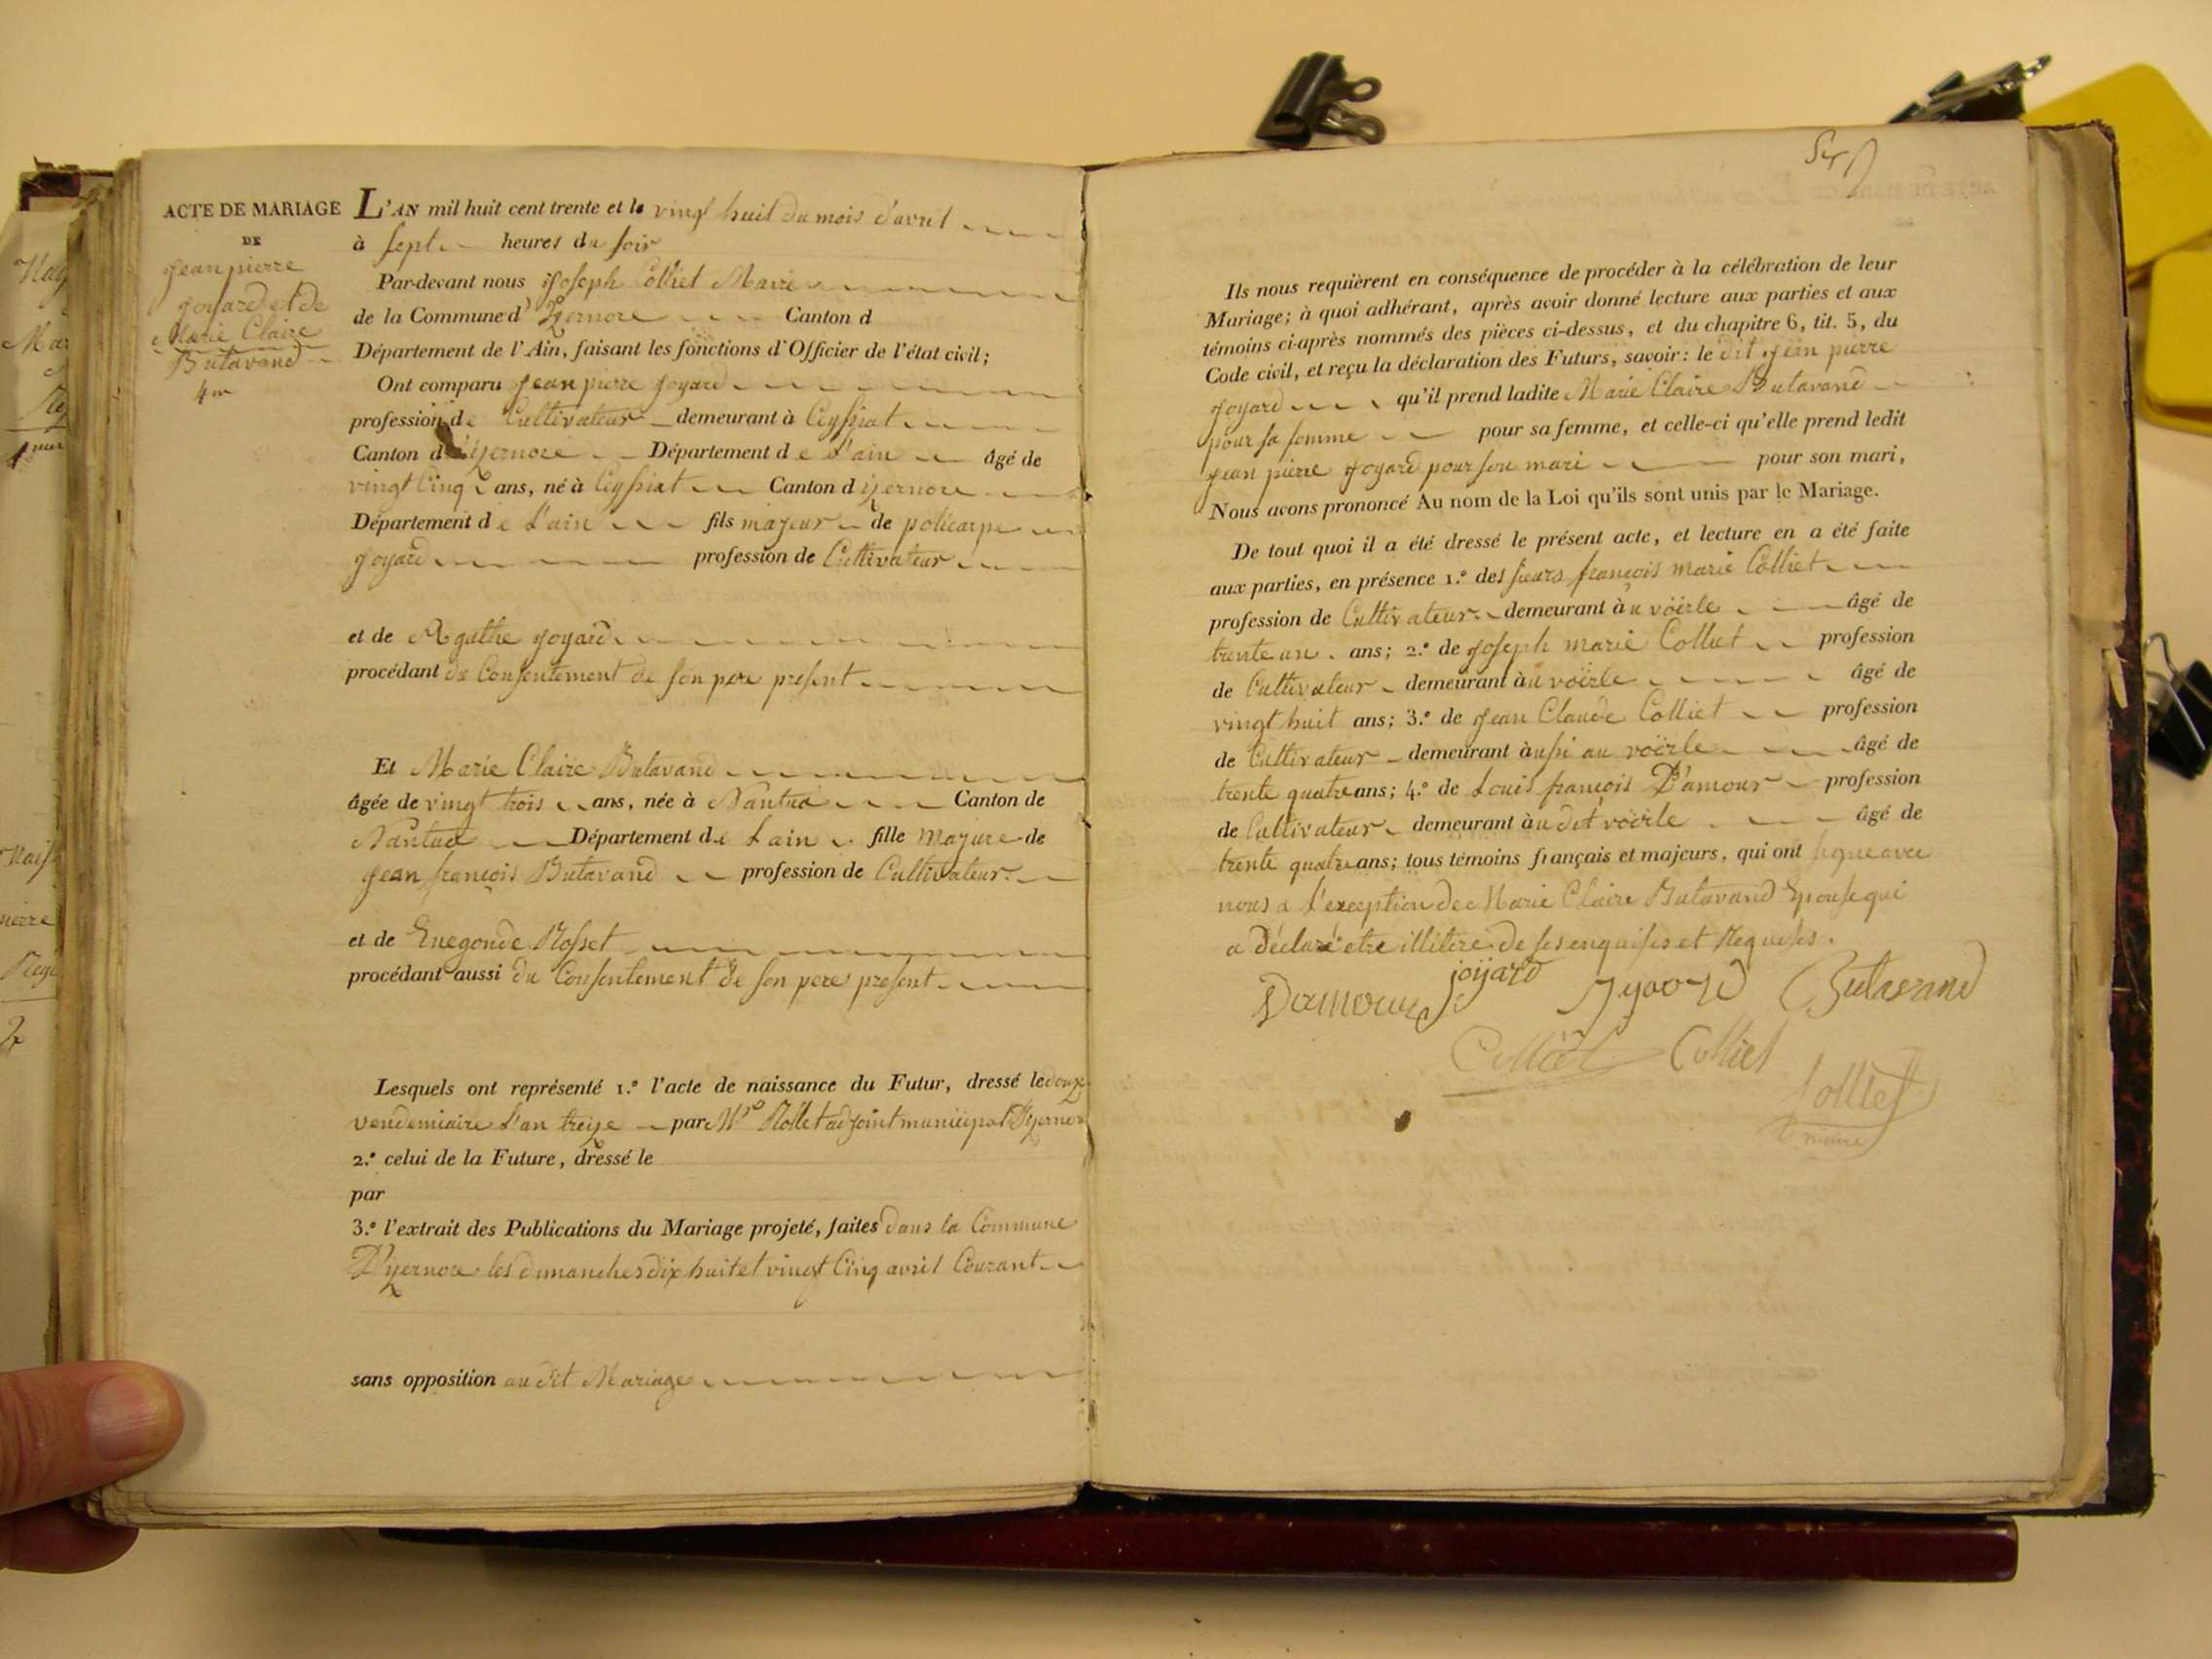 ACTE DE MARIAGE
DE
Jean pierre
Joyard et de
Marie Claire
Butavand
4me
L'AN mil huit cent trente et le vingt huit du mois d'avril
à sept heures du soir
Par-devant nous Joseph Colliet Maire
de la Commune d'Izernore Canton d
Département de l'Ain, faisant les fonctions d'Officier de l'état civil;
Ont comparu Jean pierre Joyard
profession de Cultivateur demeurant à Ceyssiat
Canton d'izernore Département de L'ain âgé de
vingt Cinq ans, né à Ceyssiat Canton d izernore
Département de L'ain fils majeur de policarpe
Joyard profession de Cultivateur
et de Agathe Joyard
procédant du Consentement de son pere present
Et Marie Claire Butavand
âgée de vingt trois ans, née à Nantua Canton de
Nantua Département de Lain fille majure de
Jean françois Butavand profession de Cultivateur
et de Rosset
procédant aussi du Consentement de son pere present
Lesquels ont représenté 1.° l'acte de naissance du Futur, dressé le douze
vendemiaire L'an treize par Mr Rollet adjoint municipal
2.° celui de la Future, dressé le
par
3.° l'extrait des Publications du Mariage projeté, faites dans la Commune
D'yzernore les dimanches dix huit et vingt Cinq avril Courant
sans opposition au dit Mariage
Ils nous requièrent en conséquence de procéder à la célébration de leur
Mariage; à quoi adhérant, après avoir donné lecture aux parties et aux
témoins ci-après nommés des pièces ci-dessus, et du chapitre 6, tit. 5, du
Code civil, et reçu la déclaration des Futurs, savoir: le dit Jean pierre
Joyard qu'il prend ladite Marie Claire Butavand
pour sa femme pour sa femme, et celle-ci qu'elle prend ledit
Jean pierre Joyard pour son mari pour son mari,
Nous avons prononcé Au nom de la Loi qu'ils sont unis par le Mariage.
De tout quoi il a été dressé le présent acte, et lecture en a été faite
aux parties, en présence 1.° des sieurs françois marie Colliet
profession de Cultivateur demeurant àu voërle âgé de
trente un ans; 2.° de Joseph marie Colliet profession
de Cultivateur demeurant àu voërle âgé de
vingt huit ans; 3.° de Jean Claude Colliet profession
de Cultivateur demeurant àussi au voërle âgé de
trente quatre ans; 4.° de Louis françois D'amour profession
de Cultivateur demeurant àu dit voërle âgé de
trente quatre ans; tous témoins français et majeurs, qui ont signe avec
nous a L'exception de Marie Claire Butavand Epouse qui
a déclaré etre illitere de ses enquises et Requises.
Damour joyard Butavand
Colliet Colliet
Colliet
maire